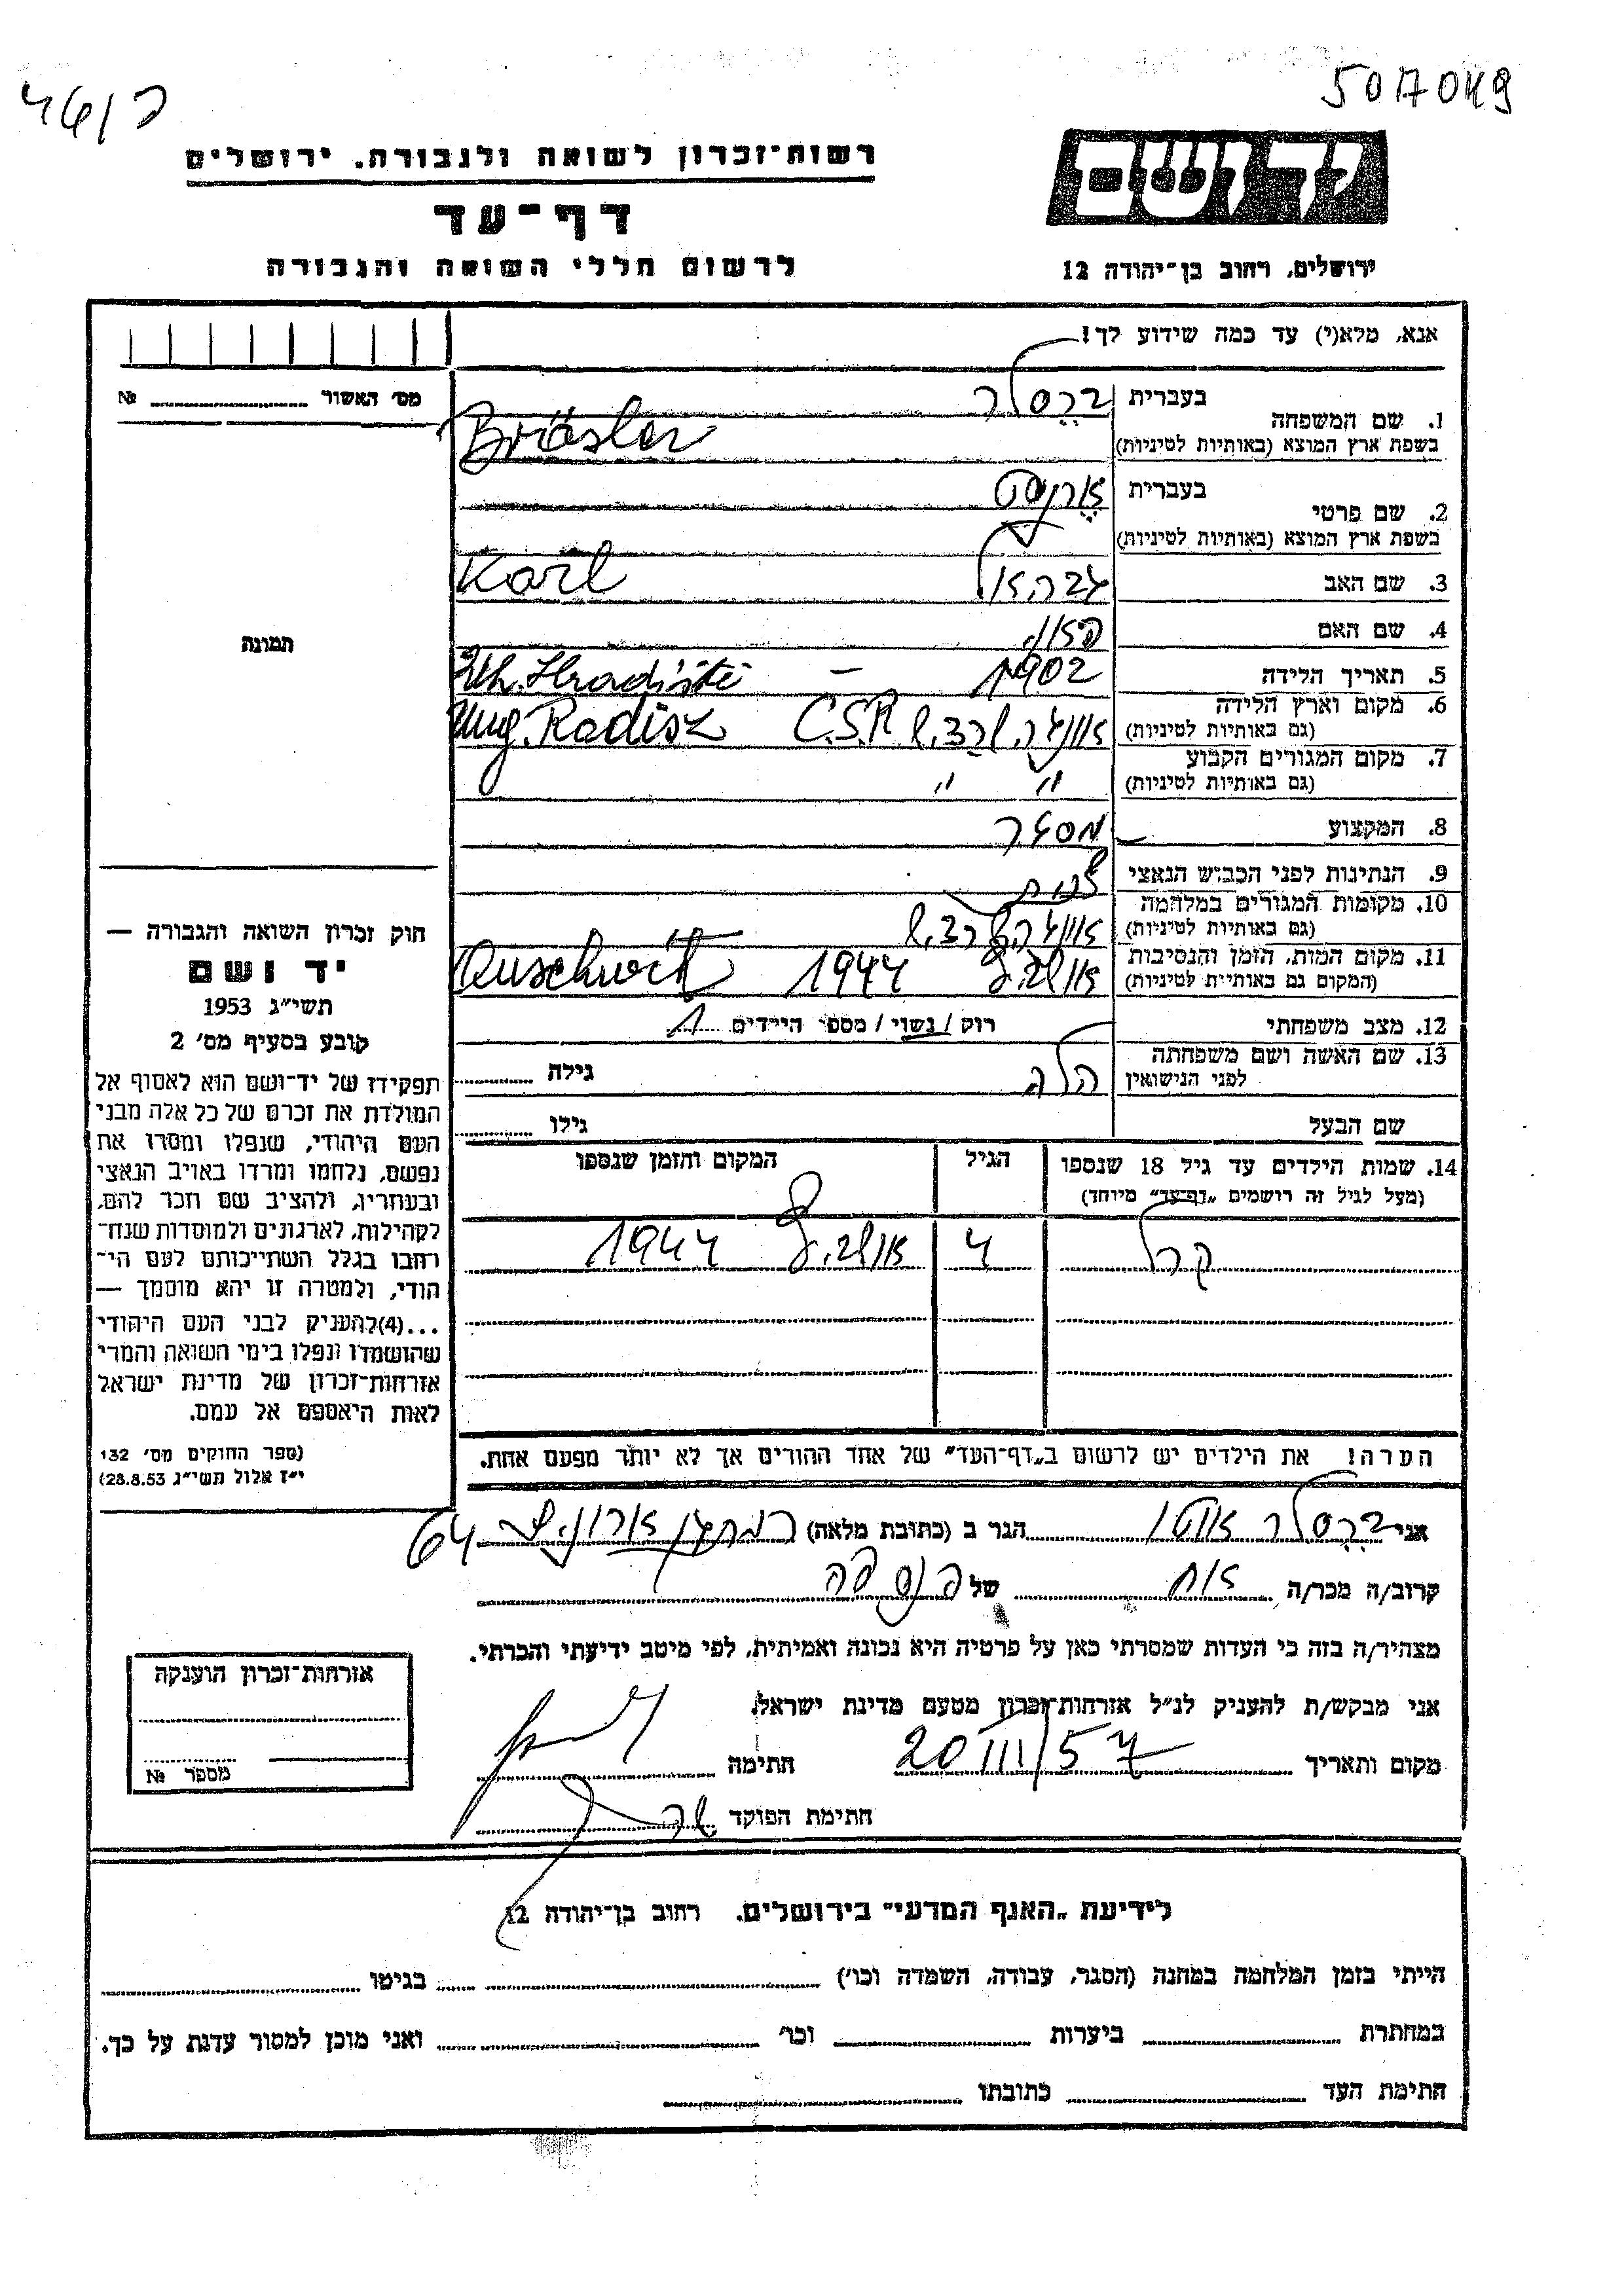 46/ב
5017049
יד ושם
רשות־זכרון לשואה ולגבורה. ירושלים
דף־עד
לרשום חללי השואה והגבורה
ירושלים, רחוב בן־יהודה 12
אנא, מלא(י) עד כמה שידוע לך!
מס׳ האשור № 
1. שם המשפחה
בעברית ברסלר
בשפת ארץ המוצא (באותיות לטיניות) Bräsler
2. שם פרטי
בעברית ארנסט
בשפת ארץ המוצא (באותיות לטיניות)
3. שם האב Karl
4. שם האם
5. תאריך הלידה 1902 – Uh. Hradiště
6. מקום וארץ הלידה
(גם באותיות לטיניות) C.S.R Ung. Radisz
7. מקום המגורים הקבוע
(גם באותיות לטיניות) " "
8. המקצוע
9. הנתינות לפני הכבוש הנאצי
10. מקומות המגורים במלחמה
(גם באותיות לטיניות)
11. מקום המות, הזמן והנסיבות
(המקום גם באותיות לטיניות) 1944 Auschwitz
12. מצב משפחתי רוק / נשוי / מספר הילדים 1
13. שם האשה ושם משפחתה
לפני הנישואין גילה
שם הבעל גילו
14. שמות הילדים עד גיל 18 שנספו
(מעל לגיל זה רושמים „דף־עד” מיוחד)
הגיל
המקום והזמן שנספו
קרל 4 1944
הערה! את הילדים יש לרשום ב„דף־העד” של אחד ההורים אך לא יותר מפעם אחת.
תמונה
חוק זכרון השואה והגבורה —
יד ושם
תשי״ג 1953
קובע בסעיף מס׳ 2
תפקידו של יד־ושם הוא לאסוף אל
המולדת את זכרם של כל אלה מבני
העם היהודי, שנפלו ומסרו את
נפשם, נלחמו ומרדו באויב הנאצי
ובעוזריו, ולהציב שם וזכר להם,
לקהילות, לארגונים ולמוסדות שנח־
רבו בגלל השתייכותם לעם הי־
הודי, ולמטרה זו יהא מוסמך —
...(4) להעניק לבני העם היהודי
שהושמדו ונפלו בימי השואה והמרי
אזרחות־זכרון של מדינת ישראל
לאות היאספם אל עמם.
(ספר החוקים מס׳ 132
י״ז אלול תשי״ג 28.8.53)
אני ברסלר הגר ב (כתובת מלאה) 64
קרוב/ה מכר/ה אח של הנספה
מצהיר/ה בזה כי העדות שמסרתי כאן על פרטיה היא נכונה ואמיתית, לפי מיטב ידיעתי והכרתי.
אני מבקש/ת להעניק לנ״ל אזרחות־זכרון מטעם מדינת ישראל
מקום ותאריך 20/III/57 חתימה
חתימת הפוקד
אזרחות־זכרון הוענקה
מספר №
לידיעת „האגף המדעי” בירושלים. רחוב בן־יהודה 12
הייתי בזמן המלחמה במחנה (הסגר, עבודה, השמדה וכו׳) בגיטו
במחתרת ביערות וכו׳ ואני מוכן למסור עדות על כך.
חתימת העד כתובתו